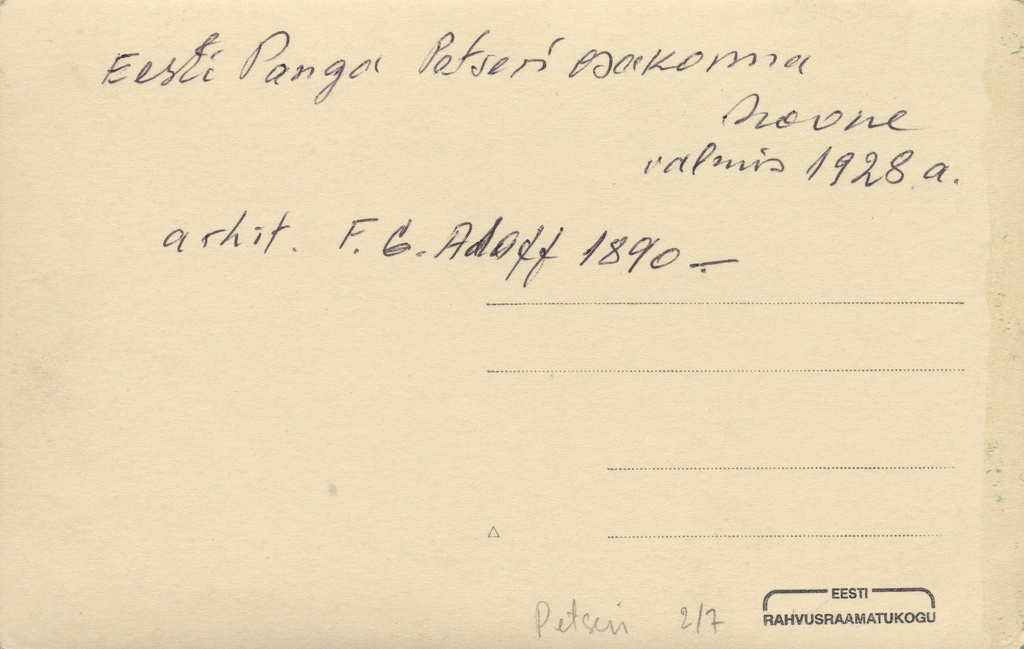 Eesti Panga Petseri osakonna
hoone
valmis 1928 a.
arhit. F. G. Adoff 1890 –
Petseri 2/7
EESTI
RAHVUSRAAMATUKOGU